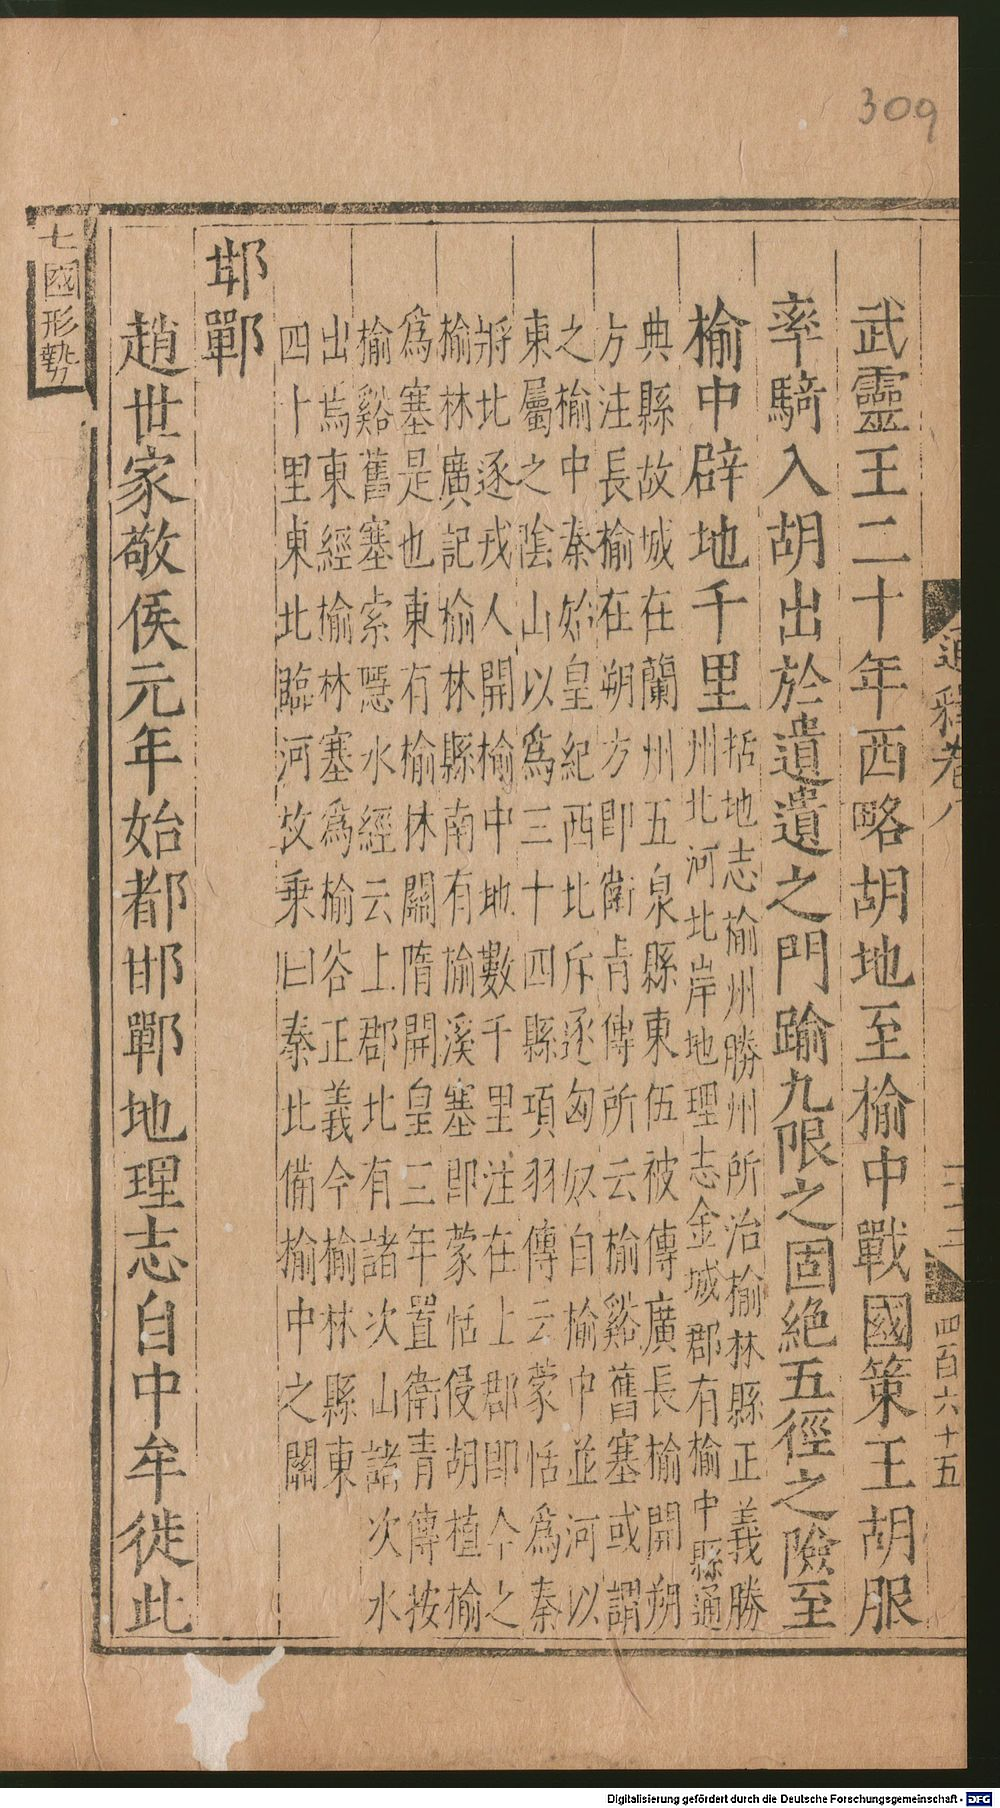 309
通釋卷八
四百六十五
武靈王二十年西略胡地至榆中戰國策王胡服
率騎入胡出於遺遺之門踰九限之固絶五徑之險至
榆中辟地千里
括地志榆州勝州所治榆林縣正義勝
州北河北岸地理志金城郡有榆中縣通
典縣故城在蘭州五泉縣東伍被傳廣長榆開朔
方注長榆在朔方即衛青傳所云榆谿舊塞或謂
之榆中秦始皇紀西北斥逐匈奴自榆中並河以
東屬之陰山以爲三十四縣項羽傳云蒙恬爲秦
將北逐戎人開榆中地數千里注在上郡即今之
榆林廣記榆林縣南有榆溪塞即蒙恬侵胡植榆
爲塞是也東有榆林關隋開皇三年置衛青傳按
榆谿舊塞索隱水經云上郡北有諸次山諸次水
出焉東經榆林塞爲榆谷正義今榆林縣東
四十里東北臨河故乗曰秦北備榆中之關
邯鄲
趙世家敬侯元年始都邯鄲地理志自中牟徙此
七國形勢
Digitalisierung gefördert durch die Deutsche Forschungsgemeinschaft - DFG